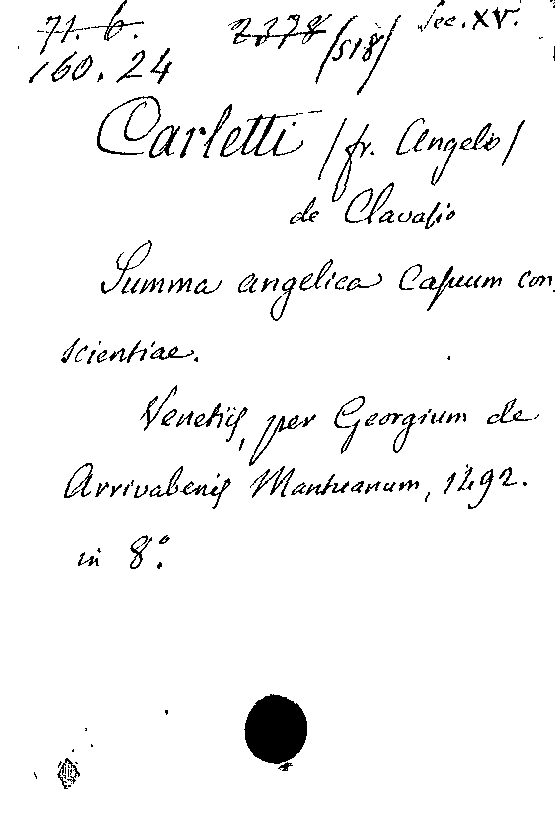 71. 6. 2378 /518/ Sec. XV.
160. 24
Carletti /fr. Angelo/
de Clavasio
Summa angelica Casuum con
scientiae.
Venetiis, per Georgium de
Arrivabenis Mantuanum, 1492.
in 8º